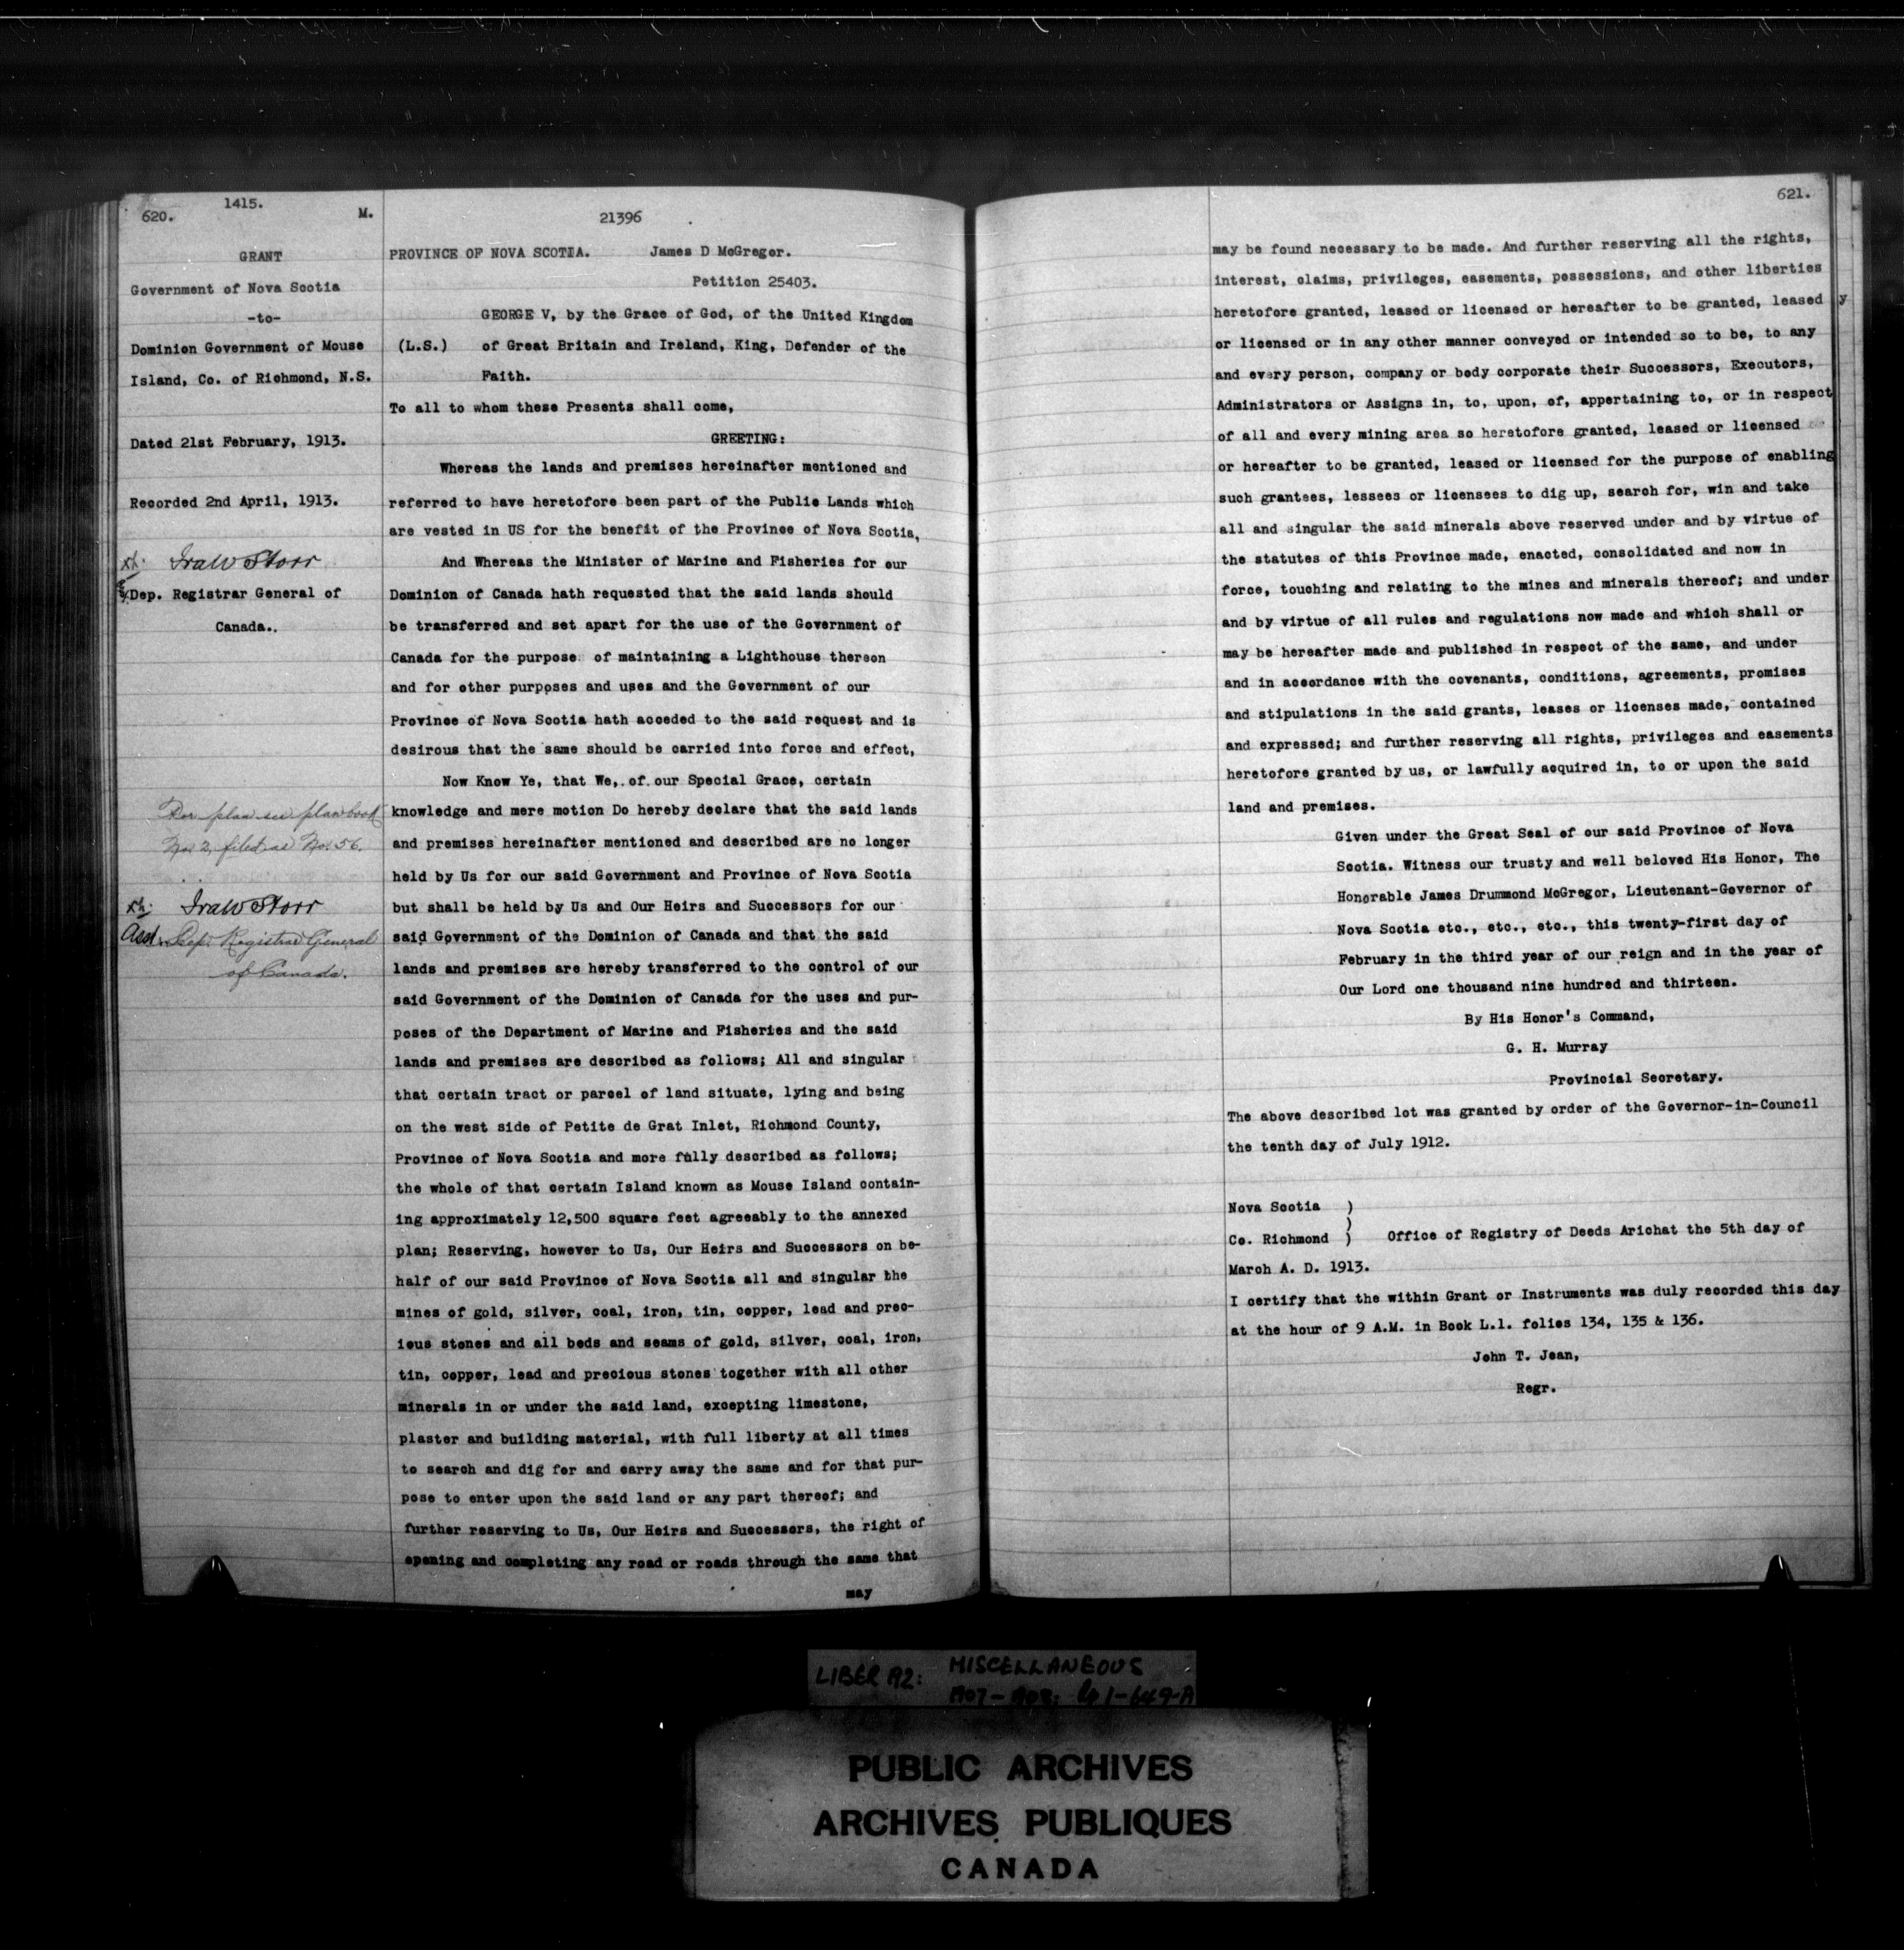 620.
1415.
M.
GRANT
Government of Nova Scotia
-to-
Dominion Government of Mouse
Island, Co. of Richmond, N.S.
Dated 21st February, 1913.
Recorded 2nd April, 1913.
Ira W Storr
Dep. Registrar General of
Canada..
For plan see plan book
No. 2, filed as No. 56.
Ira W Storr
Dep. Registrar General
of Canada.
21396
PROVINCE OF NOVA SCOTIA. James D McGregor.
Petition 25403.
GEORGE V, by the Grace of God, of the United Kingdom
(L.S.) of Great Britain and Ireland, King, Defender of the
Faith.
To all to whom these Presents shall come,
GREETING:
Whereas the lands and premises hereinafter mentioned and
referred to have heretofore been part of the Public Lands which
are vested in US for the benefit of the Province of Nova Scotia,
And Whereas the Minister of Marine and Fisheries for our
Dominion of Canada hath requested that the said lands should
be transferred and set apart for the use of the Government of
Canada for the purpose of maintaining a Lighthouse thereon
and for other purposes and uses and the Government of our
Province of Nova Scotia hath acceded to the said request and is
desirous that the same should be carried into force and effect,
Now Know Ye, that We, of our Special Grace, certain
knowledge and mere motion Do hereby declare that the said lands
and premises hereinafter mentioned and described are no longer
held by Us for our said Government and Province of Nova Scotia
but shall be held by Us and Our Heirs and Successors for our
said Government of the Dominion of Canada and that the said
lands and premises are hereby transferred to the control of our
said Government of the Dominion of Canada for the uses and pur-
poses of the Department of Marine and Fisheries and the said
lands and premises are described as follows; All and singular
that certain tract or parcel of land situate, lying and being
on the west side of Petite de Grat Inlet, Richmond County,
Province of Nova Scotia and more fully described as follows;
the whole of that certain Island known as Mouse Island contain-
ing approximately 12,500 square feet agreeably to the annexed
plan; Reserving, however to Us, Our Heirs and Successors on be-
half of our said Province of Nova Scotia all and singular the
mines of gold, silver, coal, iron, tin, copper, lead and prec-
ious stones and all beds and seams of gold, silver, coal, iron,
tin, copper, lead and precious stones together with all other
minerals in or under the said land, excepting limestone,
plaster and building material, with full liberty at all times
to search and dig for and carry away the same and for that pur-
pose to enter upon the said land or any part thereof; and
further reserving to Us, Our Heirs and Successors, the right of
opening and completing any road or roads through the same that
may
621.
may be found necessary to be made. And further reserving all the rights,
interest, claims, privileges, easements, possessions, and other liberties
heretofore granted, leased or licensed or hereafter to be granted, leased
or licensed or in any other manner conveyed or intended so to be, to any
and every person, company or body corporate their Successors, Executors,
Administrators or Assigns in, to, upon, of, appertaining to, or in respect
of all and every mining area so heretofore granted, leased or licensed
or hereafter to be granted, leased or licensed for the purpose of enabling
such grantees, lessees or licensees to dig up, search for, win and take
all and singular the said minerals above reserved under and by virtue of
the statutes of this Province made, enacted, consolidated and now in
force, touching and relating to the mines and minerals thereof; and under
and by virtue of all rules and regulations now made and which shall or
may be hereafter made and published in respect of the same, and under
and in accordance with the covenants, conditions, agreements, promises
and stipulations in the said grants, leases or licenses made, contained
and expressed; and further reserving all rights, privileges and easements
heretofore granted by us, or lawfully acquired in, to or upon the said
land and premises.
Given under the Great Seal of our said Province of Nova
Scotia. Witness our trusty and well beloved His Honor, The
Honorable James Drummond McGregor, Lieutenant-Governor of
Nova Scotia etc., etc., etc., this twenty-first day of
February in the third year of our reign and in the year of
Our Lord one thousand nine hundred and thirteen.
By His Honor's Command,
G. H. Murray
Provincial Secretary.
The above described lot was granted by order of the Governor-in-Council
the tenth day of July 1912.
Nova Scotia )
)
Co. Richmond ) Office of Registry of Deeds Arichat the 5th day of
March A. D. 1913.
I certify that the within Grant or Instruments was duly recorded this day
at the hour of 9 A.M. in Book L.l. folios 134, 135 & 136.
John T. Jean,
Regr.
LIBER A2: MISCELLANEOUS
PUBLIC ARCHIVES
ARCHIVES PUBLIQUES
CANADA